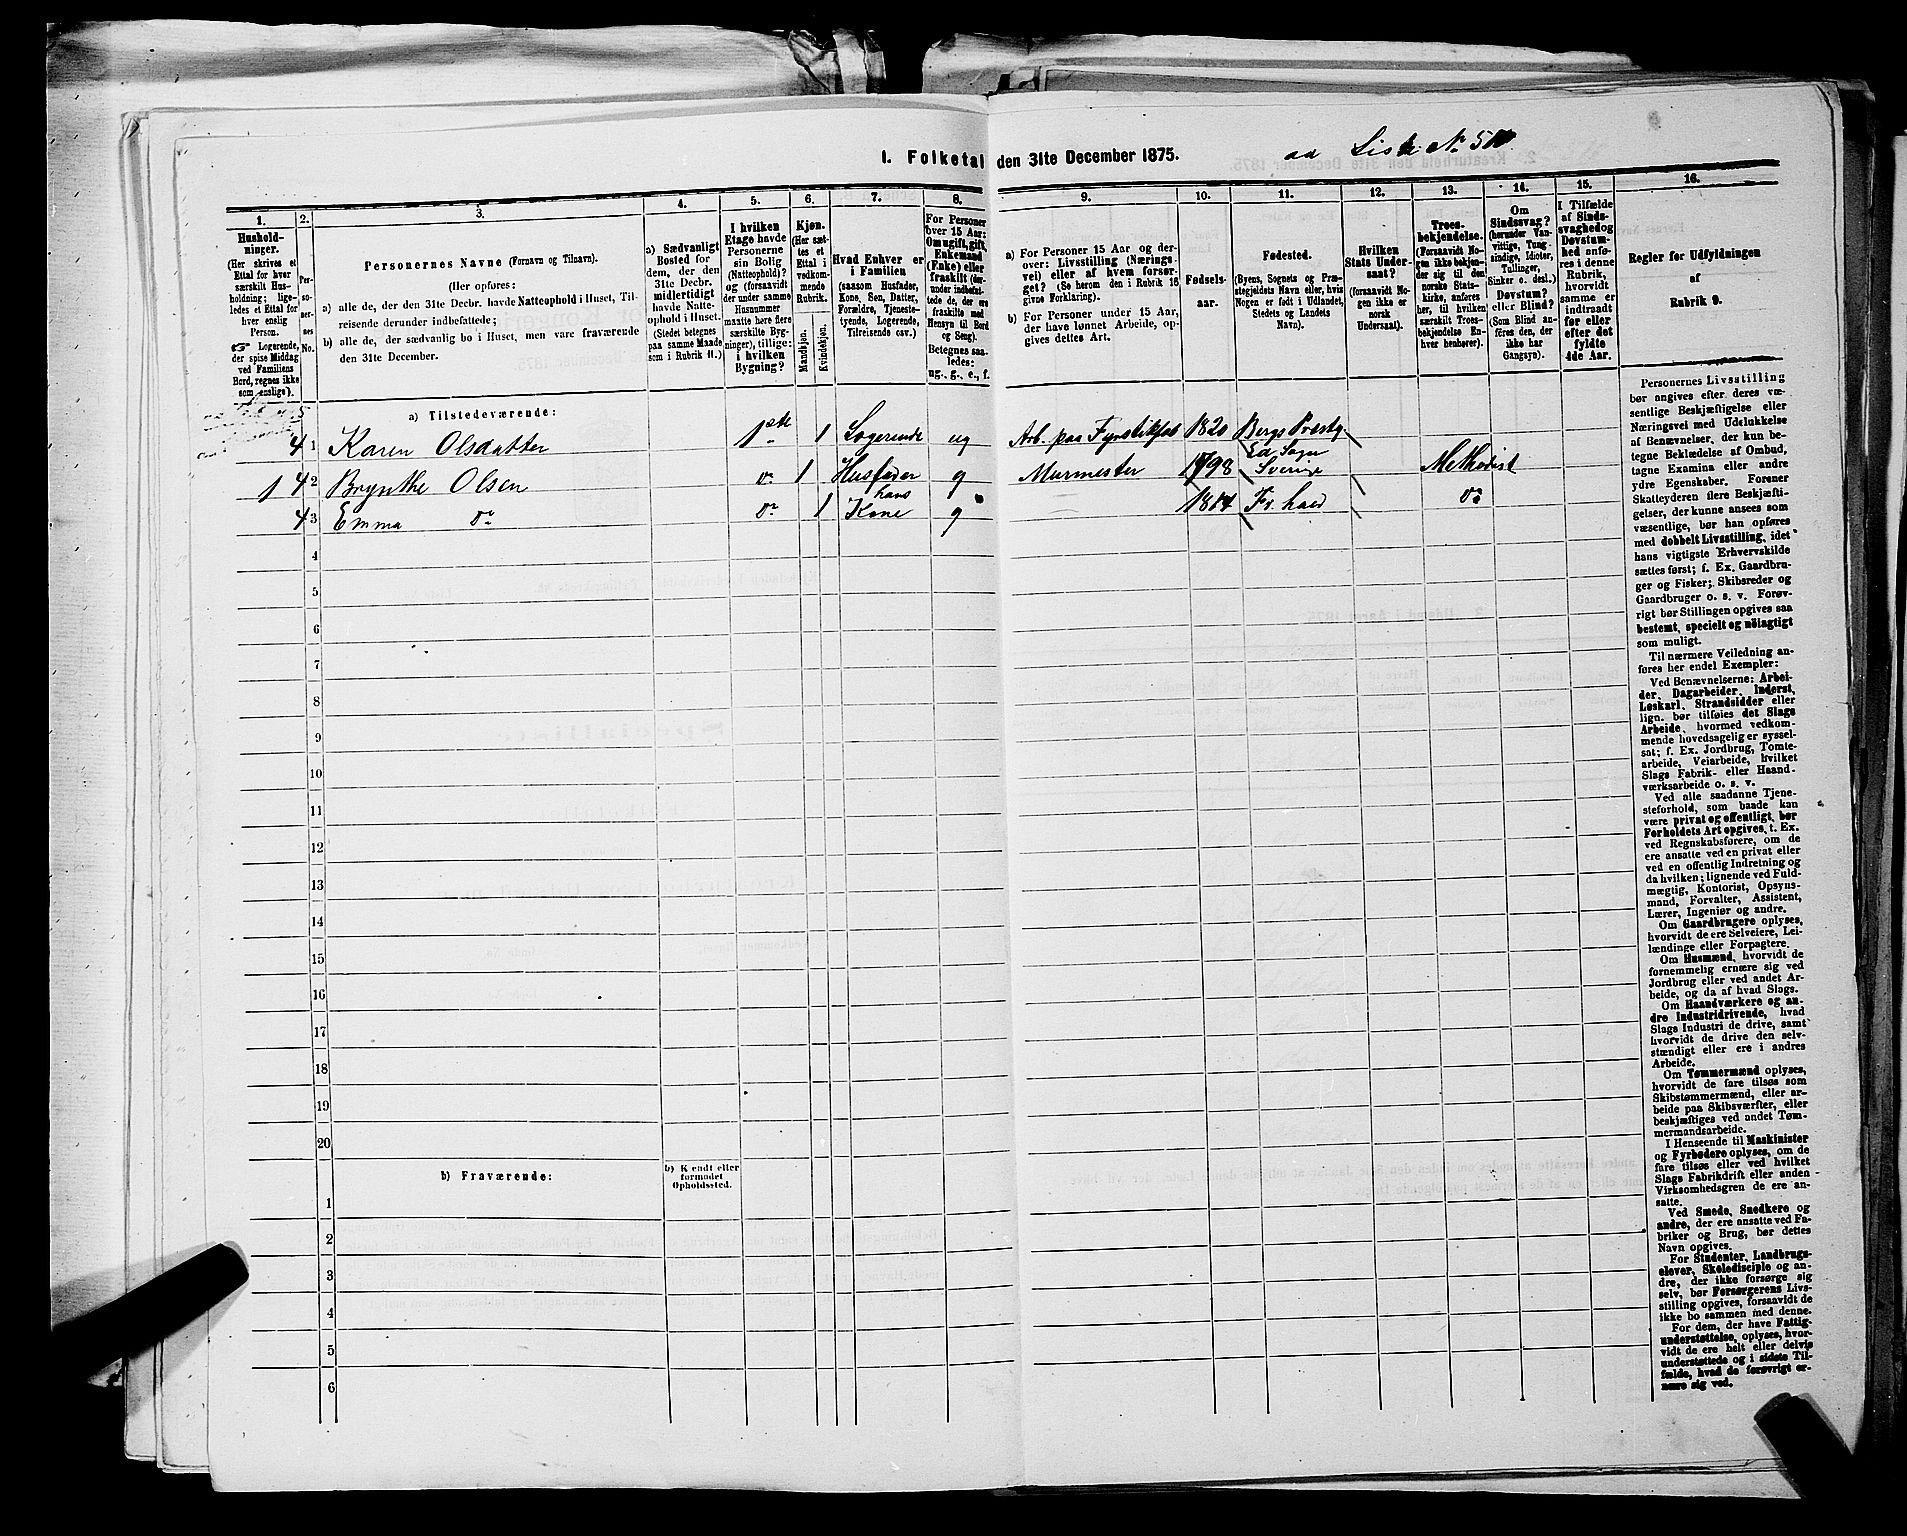 I. Folketal den 31te December 1875. aa Liste No
1. 2. 3. 4. 5. 6. 7. 8. 9. 10. 11. 12. 13. 14. 15. 16.
Hushold-
ninger.
(Her skrives et
Ettal for hver
særskilt Hus-
holdning; lige-
ledes et Ettal for
hver enslig
Person.
☞ Logerende,
der spise Middag
ved Familiens
Bord, regnes ikke
som enslige).
Per-
so-
ner-
nes
No.
Personernes Navne (Fornavn og Tilnavn).
(Her opføres:
a) alle de, der den 31te Decbr. havde Natteophold i Huset, Til-
reisende derunder indbefattede;
b) alle de, der sædvanlig bo i Huset, men vare fraværende
den 31te December.
a) Sædvanligt
Bosted for
dem, der den
31te Decbr.
midlertidigt
havde Natte-
ophold i Huset.
(Stedet betegnes
paa samme Maade
som i Rubrik 11.)
I hvilken
Etage havde
Personerne
sin Bolig
(Natteophold)?
og (forsaavidt
der under samme
Husnummer
maatte høre flere
særskilte Byg-
ninger), tillige:
i hvilken
Bygning?
Kjøn.
(Her sæt-
tes et
Ettal i
vedkom-
mende
Rubrik.
Mandkjøn.
Kvindekjøn.
Hvad Enhver er
i Familien
(saasom Husfader,
Kone, Søn, Datter,
Forældre, Tjeneste-
tyende, Logerende,
Tilreisende osv.)
For Personer
over 15 Aar:
Om ugift, gift,
Enkemand
(Enke) eller
fraskilt (der-
under indbefat-
tede de, der ere
fraskilte med
Hensyn til Bord
og Seng).
Betegnes saa-
ledes:
ug., g., e., f.
a) For Personer 15 Aar og der-
over: Livsstilling (Nærings-
vei) eller af hvem forsør-
get? (Se herom den i Rubrik 16
givne Forklaring).
b) For Personer under 15 Aar,
der have lønnet Arbeide, op-
gives dettes Art.
Fødsels-
aar.
Fødested.
(Byens, Sognets og Præ-
stegjeldets Navn eller, hvis
Nogen er født i Udlandet,
Stedets og Landets
Navn).
Hvilken
Stats Under-
saat?
(forsaavidt No-
gen ikke er
norsk
Undersaat).
Troes-
bekjendelse.
(Forsaavidt No-
gen ikke bekjen-
der sig til den
norske Stats-
kirke, anføres
her, til hvilken
særskilt Troes-
bekjendelse En-
hver henhører).
Om
Sindssvag?
(herunder Van-
vittige, Tung-
sindige, Idioter,
Tullinger,
Sinker o. desl.)
Døvstum?
eller Blind?
(Som Blind an-
føres den, der
ikke har
Gangsyn).
I Tilfælde
af Sinds-
svaghed og
Døvstum-
hed anfø-
res i denne
Rubrik,
hvorvidt
samme er
indtraadt
før eller
efter det
fyldte
4de Aar.
Regler for Udfyldningen
af
Rubrik 9.
a) Tilstedeværende:
4 1 Karen Olsdatter 1ste 1 Logerende ug Arb. paa Fyrstikfab 1820 Bergs Præstg.
1 4 2 Brynthe Olsen do 1 Husfader g Murmester 1798 Ed Sogn Sverige Methodist
4 3 Emma do do 1 hans Kone g 1814 Fr.hald do
4
5
6
7
8
9
10
11
12
13
14
15
16
17
18
19
20
b) Fraværende:
b) Kjendt eller
formodet
Opholdssted.
1
2
3
4
5
6
Personernes Livsstilling
bør angives efter deres væ-
sentlige Beskjæftigelse eller
Næringsvei med Udelukkelse
af Benævnelser, der kun be-
tegne Beklædelse af Ombud,
tagne Examina eller andre
ydre Egenskaber. Forener
Skatteyderen flere Beskjæfti-
gelser, der kunne ansees som
væsentlige, bør han opføres
med dobbelt Livsstilling, idet
hans vigtigste Erhvervskilde
sættes først; f. Ex. Gaardbru-
ger og Fisker; Skibsreder og
Gaardbruger o. s. v. Forøv-
rigt bør Stillingen opgives saa
bestemt, specielt og nøiagtigt
som muligt.
Til nærmere Veiledning an-
føres her endel Exempler:
Ved Benævnelserne: Arbei-
der, Dagarbeider, Inderst,
Løskarl, Strandsidder eller
lign. bør tilføies det Slags
Arbeide, hvormed vedkom-
mende hovedsagelig er syssel-
sat; f. Ex. Jordbrug, Tomte-
arbeide, Veiarbeide, hvilket
Slags Fabrik- eller Haand-
værksarbeide o. s. v.
Ved alle saadanne Tjene-
steforhold, som baade kan
være privat og offentligt, bør
Forholdets Art opgives, t. Ex.
ved Regnskabsførere, om de
ere ansatte ved en privat eller
ved en offentlig Indretning og
da hvilken; lignende ved Fuld-
mægtig, Kontorist, Opsyns-
mand, Forvalter, Assistent,
Lærer, Ingeniør og andre.
Om Gaardbrugere oplyses,
hvorvidt de ere Selveiere, Lei-
lændinge eller Forpagtere.
Om Husmænd, hvorvidt de
fornemmelig ernære sig ved
Jordbrug eller ved andet Ar-
beide, og da af hvad Slags.
Om Haandværkere og an-
dre Industridrivende, hvad
Slags Industri de drive, samt
hvorvidt de drive den selv-
stændigt eller ere i andres
Arbeide.
Om Tømmermænd oplyses,
hvorvidt de fare tilsøs som
Skibstømmermænd, eller ar-
beide paa Skibsværfter, eller
beskjæftiges ved andet Tøm-
mermandsarbeide.
I Henseende til Maskinister
og Fyrbødere oplyses, om de
fare tilsøs eller ved hvilket
Slags Fabrikdrift eller anden
Virksomhedsgren de ere an-
satte.
Ved Smede, Snedkere og
andre, der ere ansatte ved Fa-
briker og Brug, bør dettes
Navn opgives.
For Studenter, Landbrugs-
elever, Skoledisciple og an-
dre, der ikke forsørge sig
selv, bør Forsørgerens Livs-
stilling opgives, forsaavidt de
ikke bo sammen med denne.
For dem, der have Fattig-
understøttelse, oplyses, hvor-
vidt de ere helt eller delvis
understøttede og i sidste Til-
fælde, hvad de forøvrigt er-
nære sig ved.